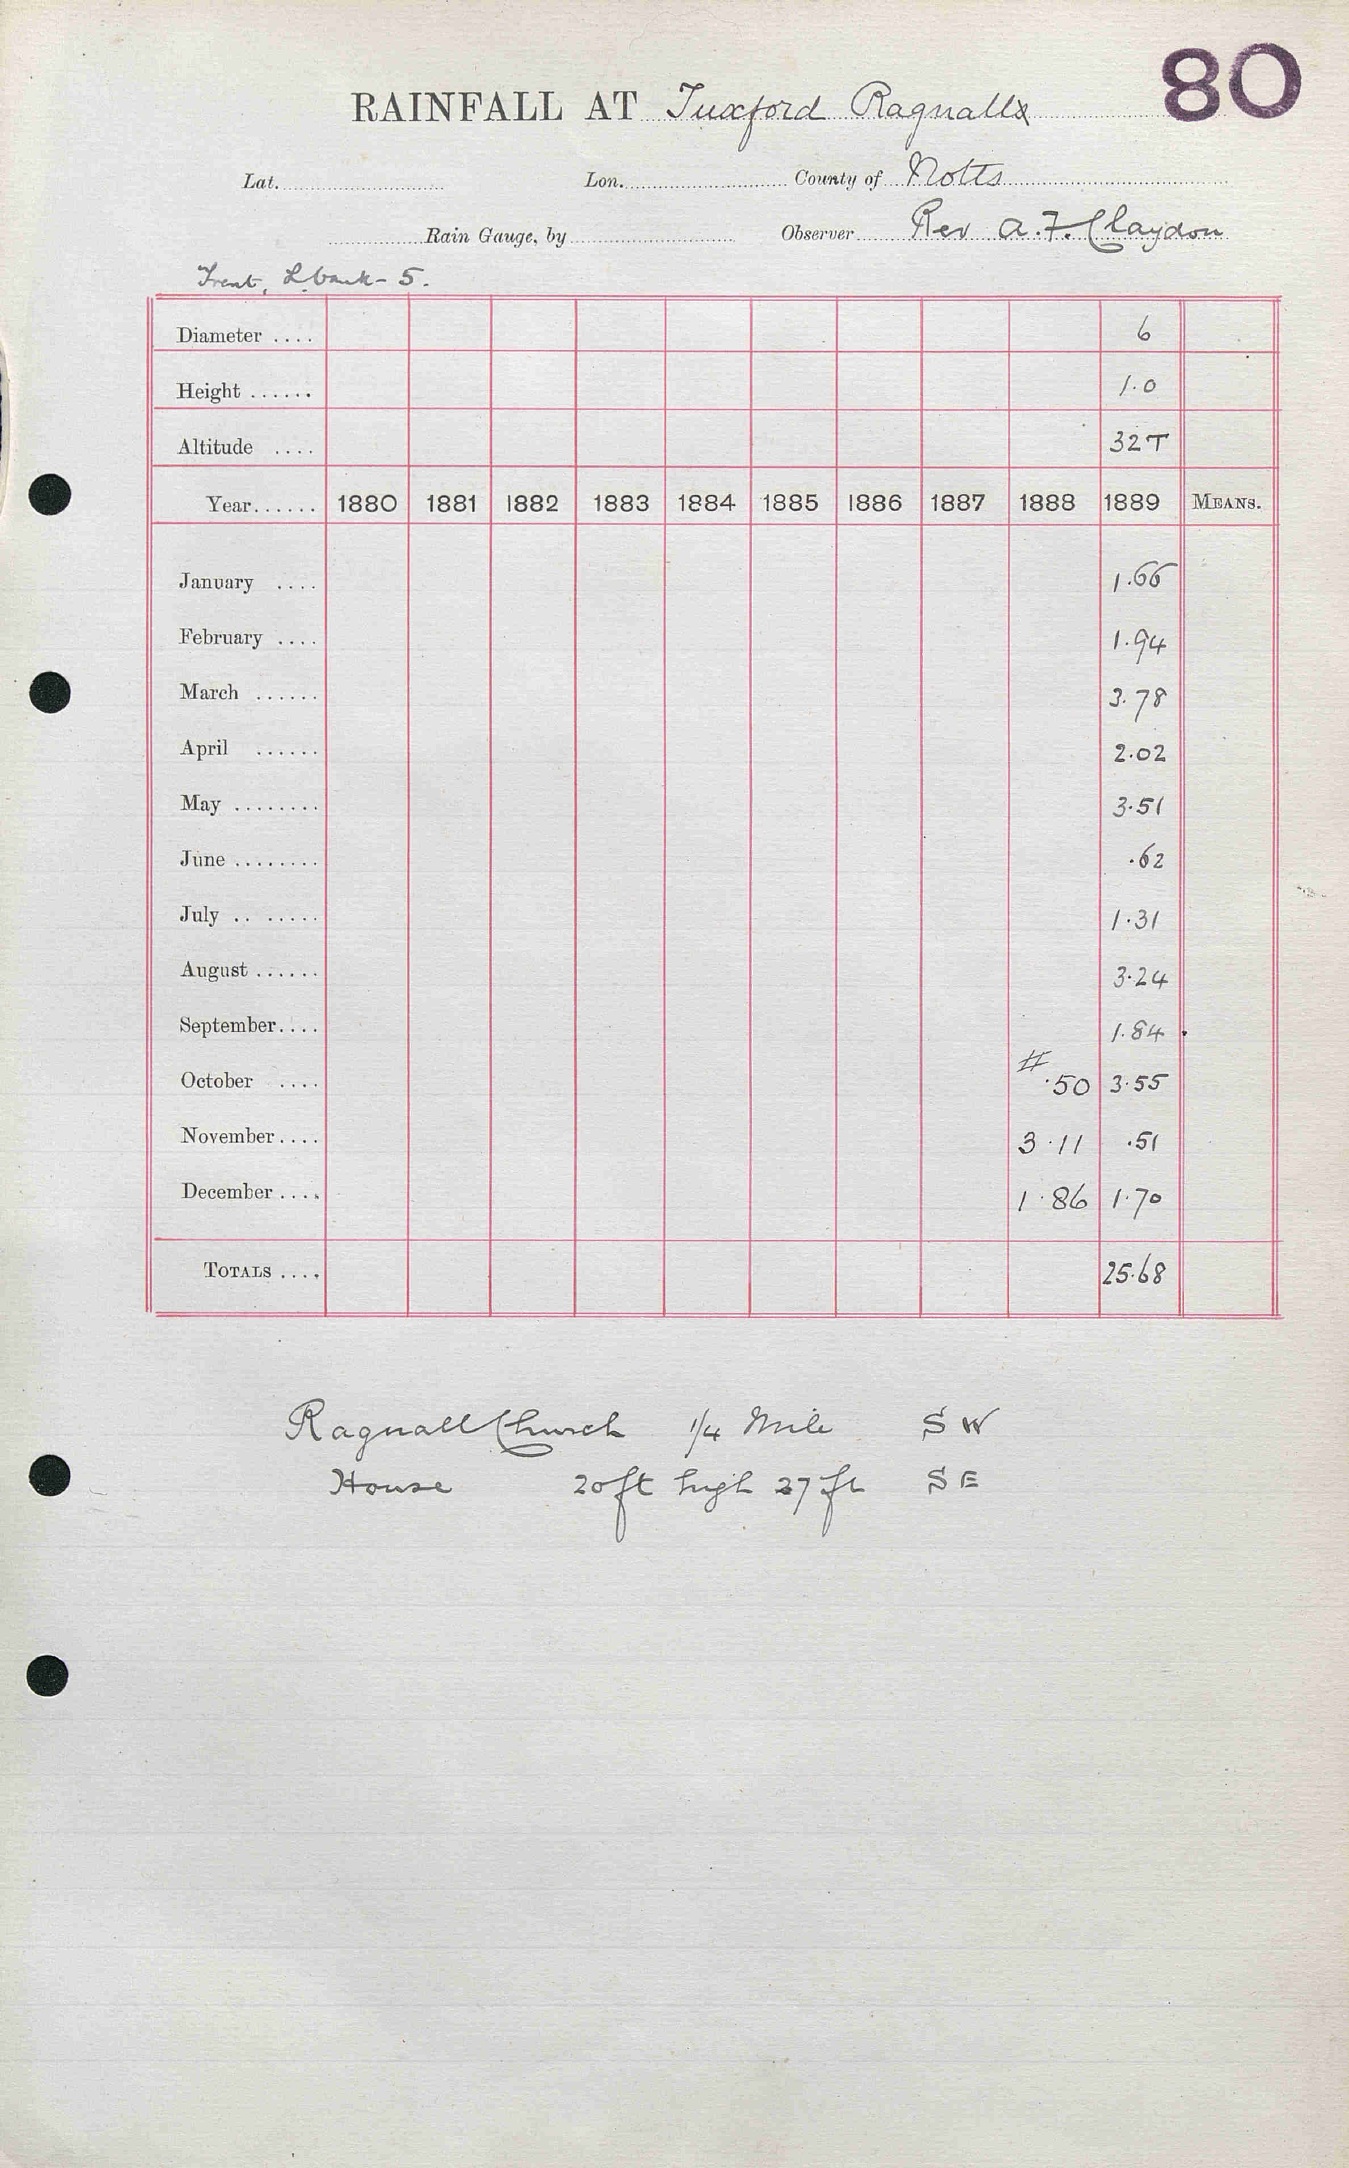 80
RAINFALL AT Tuxford Ragnall
Lat. Lon. County of Notts
Rain Gauge, by Observer Rev A. F. Claydon
Trent, L. bank - 5.
Diameter .... 6
Height ...... 1.0
Altitude .... 32T
Year...... 1880 1881 1882 1883 1884 1885 1886 1887 1888 1889 MEANS.
January .... 1.66
February .... 1.94
March ...... 3.78
April ...... 2.02
May ........ 3.51
June ........ .62
July .. ..... 1.31
August ...... 3.24
September.... 1.84
October .... # .50 3.55
November.... 3.11 .51
December .... 1.86 1.70
TOTALS .... 25.68
Ragnall Church 1/4 Mile SW
House 20 ft high 27 ft SE